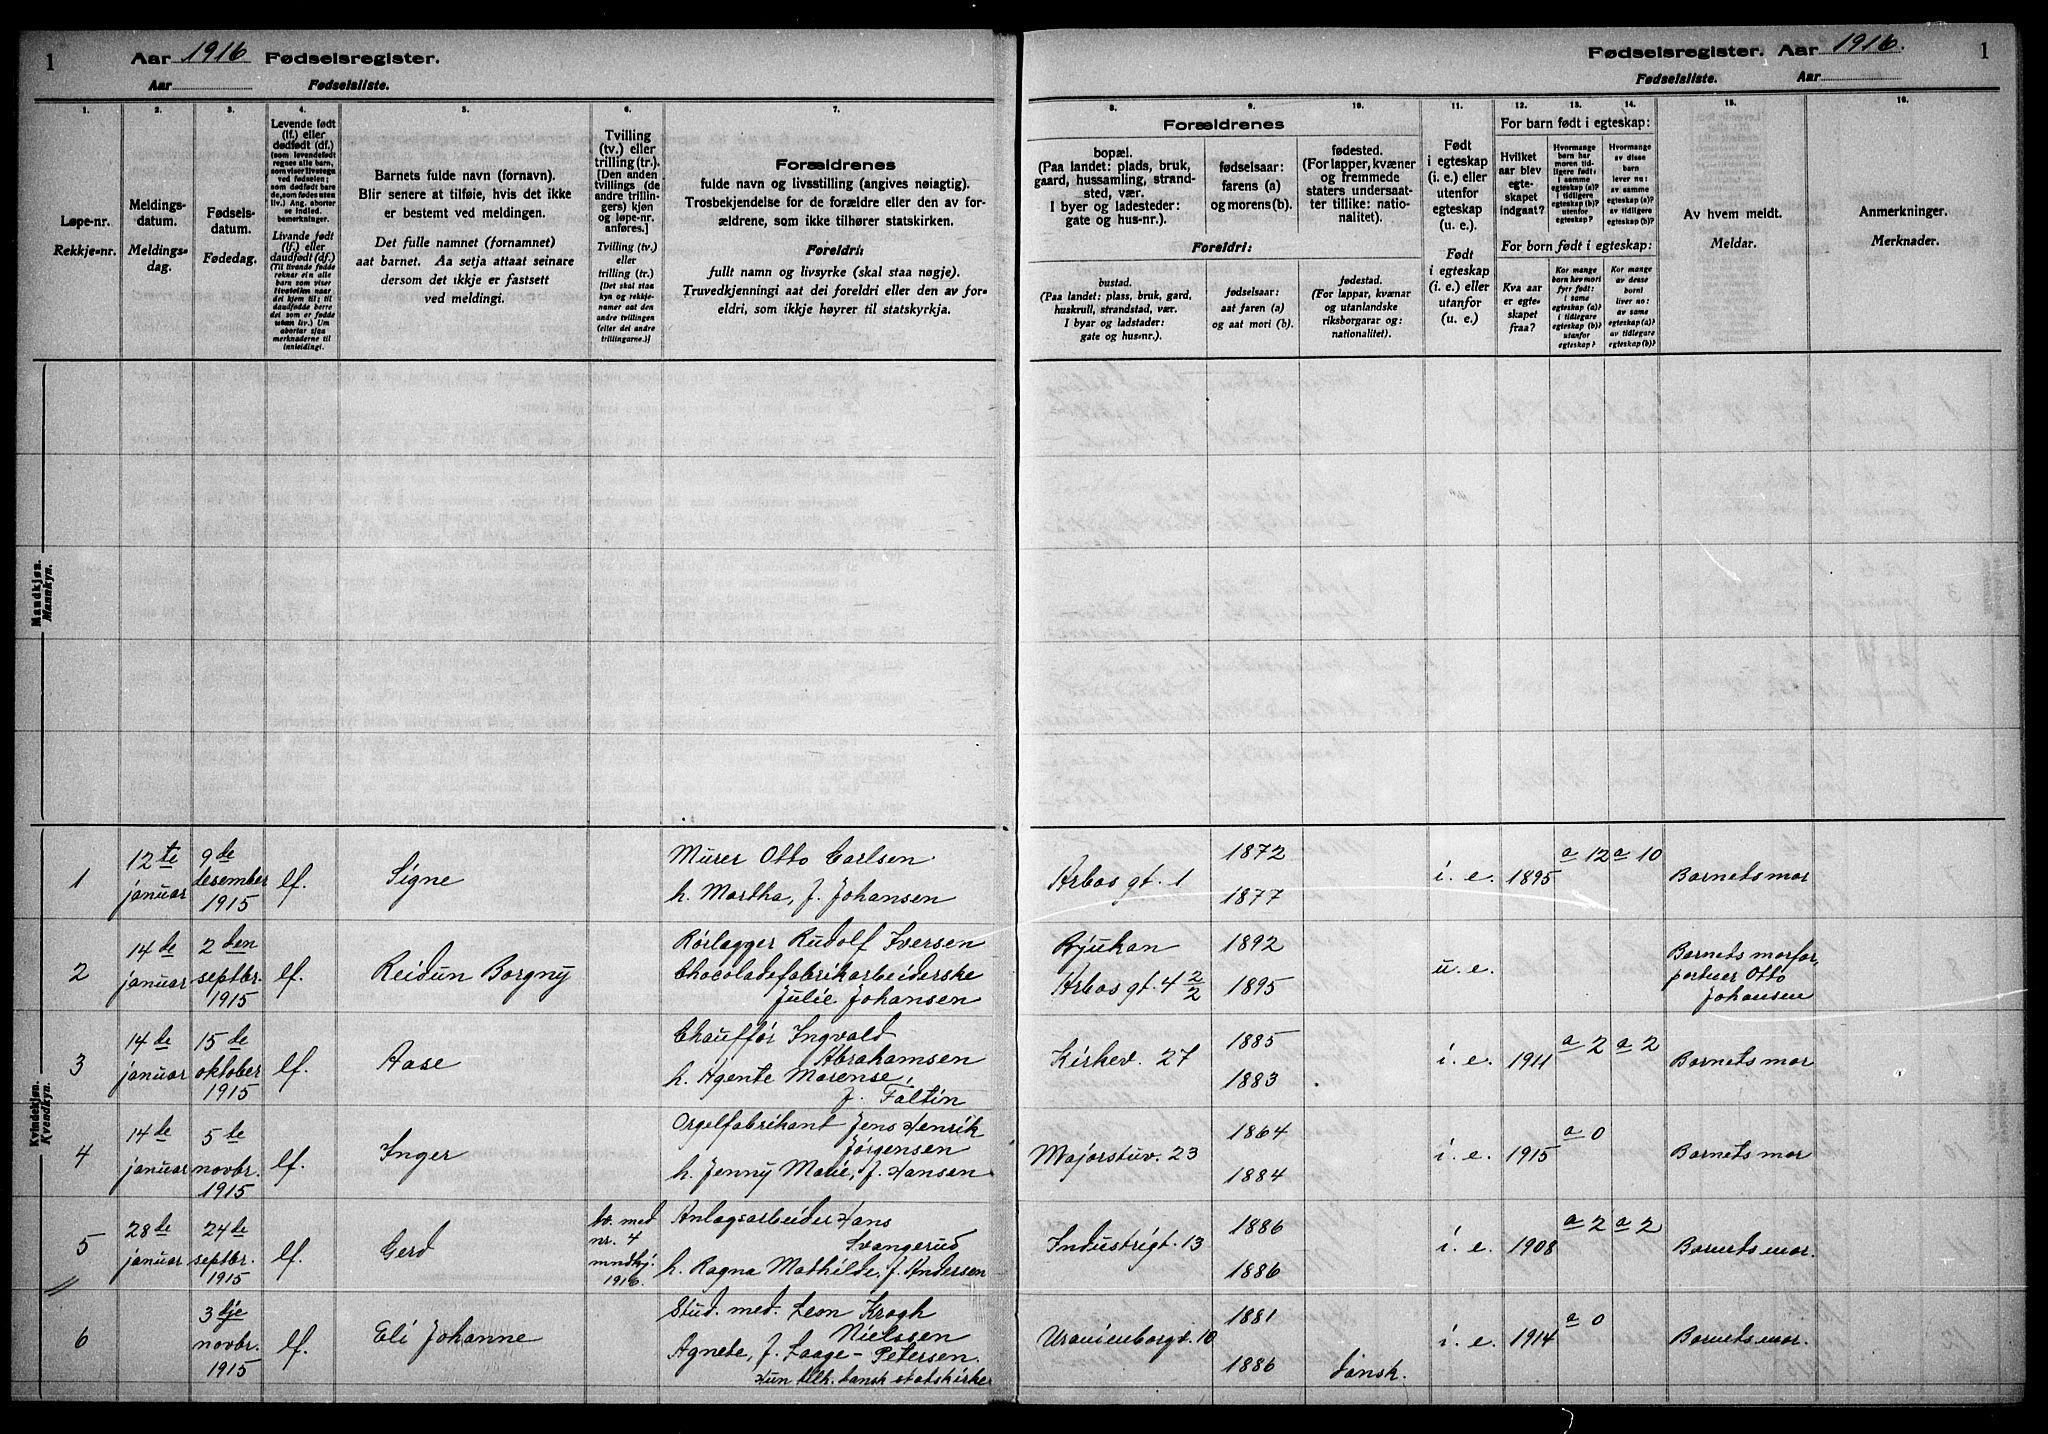 1
Aar 1916 Fødselsregister.
Aar Fødselsliste.
Fødselsregister. Aar 1916.
Fødselsliste. Aar
1
1.
Løpe-nr.
Rekkje-nr.
2.
Meldings-
datum.
Meldings-
dag.
3.
Fødsels-
datum.
Fødedag.
4.
Levende født
(lf.) eller
dødfødt (df.)
(som levendefødt
regnes alle barn,
som viser livstegn
ved fødselen;
som dødfødt bare
de, som fødes uten
liv.) Ang. aborter
se indled.
bemerkninger.
Livande født
(lf.) eller
daudfødt (df.)
(Til livande fødde
reknar ein alle
barn som viser
livsteikn naar
det kjem til; til
daudfødde berre
dei som er fødde
utan liv.) Um
abortar sjaa
merknaderne til
innleidingi.
5.
Barnets fulde navn (fornavn).
Blir senere at tilføie, hvis det ikke
er bestemt ved meldingen.
Det fulle namnet (fornamnet)
aat barnet. Aa setja attaat seinare
dersom det ikkje er fastsett
ved meldingi.
6.
Tvilling
(tv.) eller
trilling (tr.)
[Den anden
tvillings (de
andre trillin-
gers) kjøn
og løpe-nr.
anføres.]
Tvilling (tv.)
eller
trilling (tr.)
[Det skal staa
kyn og rekkje-
nummer aat den
andre tvillingen
(eller dei andre
trillingarne.)]
7.
Forældrenes
fulde navn og livsstilling (angives nøiagtig).
Trosbekjendelse for de forældre eller den av for-
ældrene, som ikke tilhører statskirken.
Foreldri:
fullt namn og livsyrke (skal staa nøgje).
Truvedkjenningi aat dei foreldri eller den av for-
eldri, som ikkje høyrer til statskyrkja.
Forældrenes
8.
bopæl.
(Paa landet: plads, bruk,
gaard, hussamling, strand-
sted, vær.
I byer og ladesteder:
gate og hus-nr.).
9.
fødselsaar:
farens (a)
og morens (b).
10.
fødested.
(For lapper, kvæner
og fremmede
staters undersaat-
ter tillike: natio-
nalitet).
Foreldri:
bustad.
(Paa landet: plass, bruk, gard,
huskrull, strandstad, vær.
I byar og ladstader:
gate og hus-nr.).
fødselsaar:
aat faren (a)
og aat mori (b).
fødestad.
(For lappar, kvænar
og utanlandske
riksborgarar og:
nationalitet).
11.
Født
i egteskap
(i. e.) eller
utenfor
egteskap
(u. e.).
Født
i egteskap
(i. e.) eller
utanfor
egteskap
(u. e.).
For barn født i egteskap:
12.
Hvilket
aar blev
egte-
skapet
indgaat?
13.
Hvormange
barn har
moren tid-
ligere født:
i samme
egteskap (a)?
i tidligere
egteskap (b)?
utenfor
egteskap?
14.
Hvormange
av disse
barn
lever nu:
av samme
egteskap (a)?
av tidligere
egteskap (b)?
For born født i egteskap:
Kva aar
er egte-
skapet
fraa?
Kor mange
born hev mori
fyrr født:
i same
egteskap (a)?
i tidlegare
egteskap (b)?
utanfor
egteskap?
Kor mange
av desse
borni
liver no:
av same
egteskap (a)?
av tidlegare
egteskap (b)?
15.
Av hvem meldt.
Meldar.
16.
Anmerkninger.
Merknader.
Mandkjøn.
Mannkyn.
Kvindekjøn.
Kvendkyn.
1 12te januar 9de desember 1915 lf. Signe Murer Otto Carlsen h. Martha, f. Johansen Arbos gt. 1 1872 1877 i. e. 1895 a 12 a 10 Barnets mor
2 14de januar 2den septbr. 1915 lf. Reidun Borgny Rørlægger Rudolf Iversen Chocoladefabrikarbeiderske Julie Johansen Rjukan Arbos gt. 4 2/2 1892 1895 u. e. Barnets morfar, portner Otto Johansen
3 14de januar 15de oktober 1915 lf. Aase Chauffør Ingvald Abrahamsen h. Agente Marense, f. Faltin Kirkev. 27 1885 1883 i. e. 1911 a 2 a 2 Barnets mor
4 14de januar 5te novbr. 1915 lf. Inger Orgelfabrikant Jens Henrik Jørgensen h. Jenny Marie, f. Hansen Majorstuv. 23 1864 1884 i. e. 1915 a 0 Barnets mor
5 28de januar 24de septbr. 1915 lf. Gerd tv. med nr. 4 mndkj. 1916 Anlagsarbeider Hans Svangerud h. Ragna Mathilde, f. Andersen Industrigt. 13 1886 1886 i. e. 1908 a 2 a 2 Barnets mor.
6 3dje novbr. 1915 lf. Eli Johanne Stud. med. Leon Krogh Nielssen Agnete, f. Laage-Petersen. Hun tilh. dansk statskirke Uranienborgv. 10 1881 1886 dansk. i. e. 1914 a 0 Barnets mor.